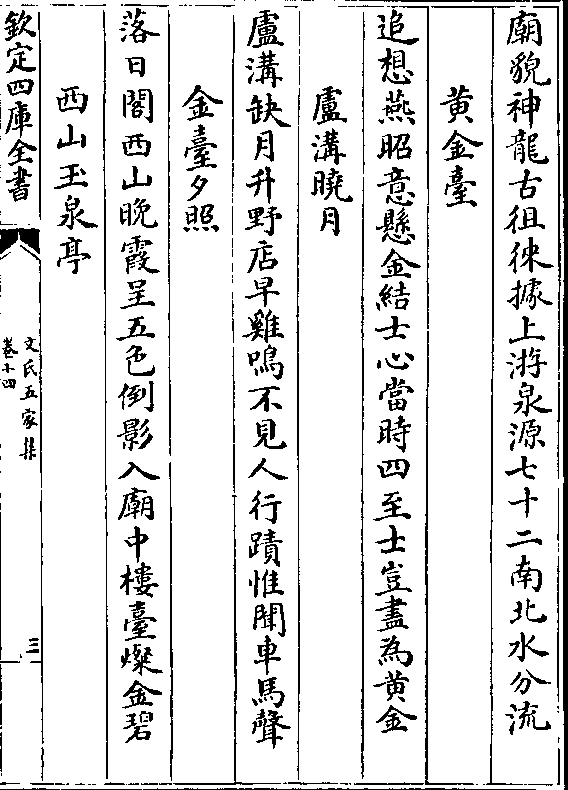 廟貌神龍古徂徠據上游泉源七十二南北水分流
黄金臺
追想燕昭意懸金結士心當時四至士豈盡為黄金
盧溝曉月
盧溝缺月升野店早雞鳴不見人行蹟惟聞車馬聲
金臺夕照
落日閣西山晩霞呈五色倒影入廟中樓臺燦金碧
西山玉泉亭
欽定四庫全書
文氏五家集
卷十四
三